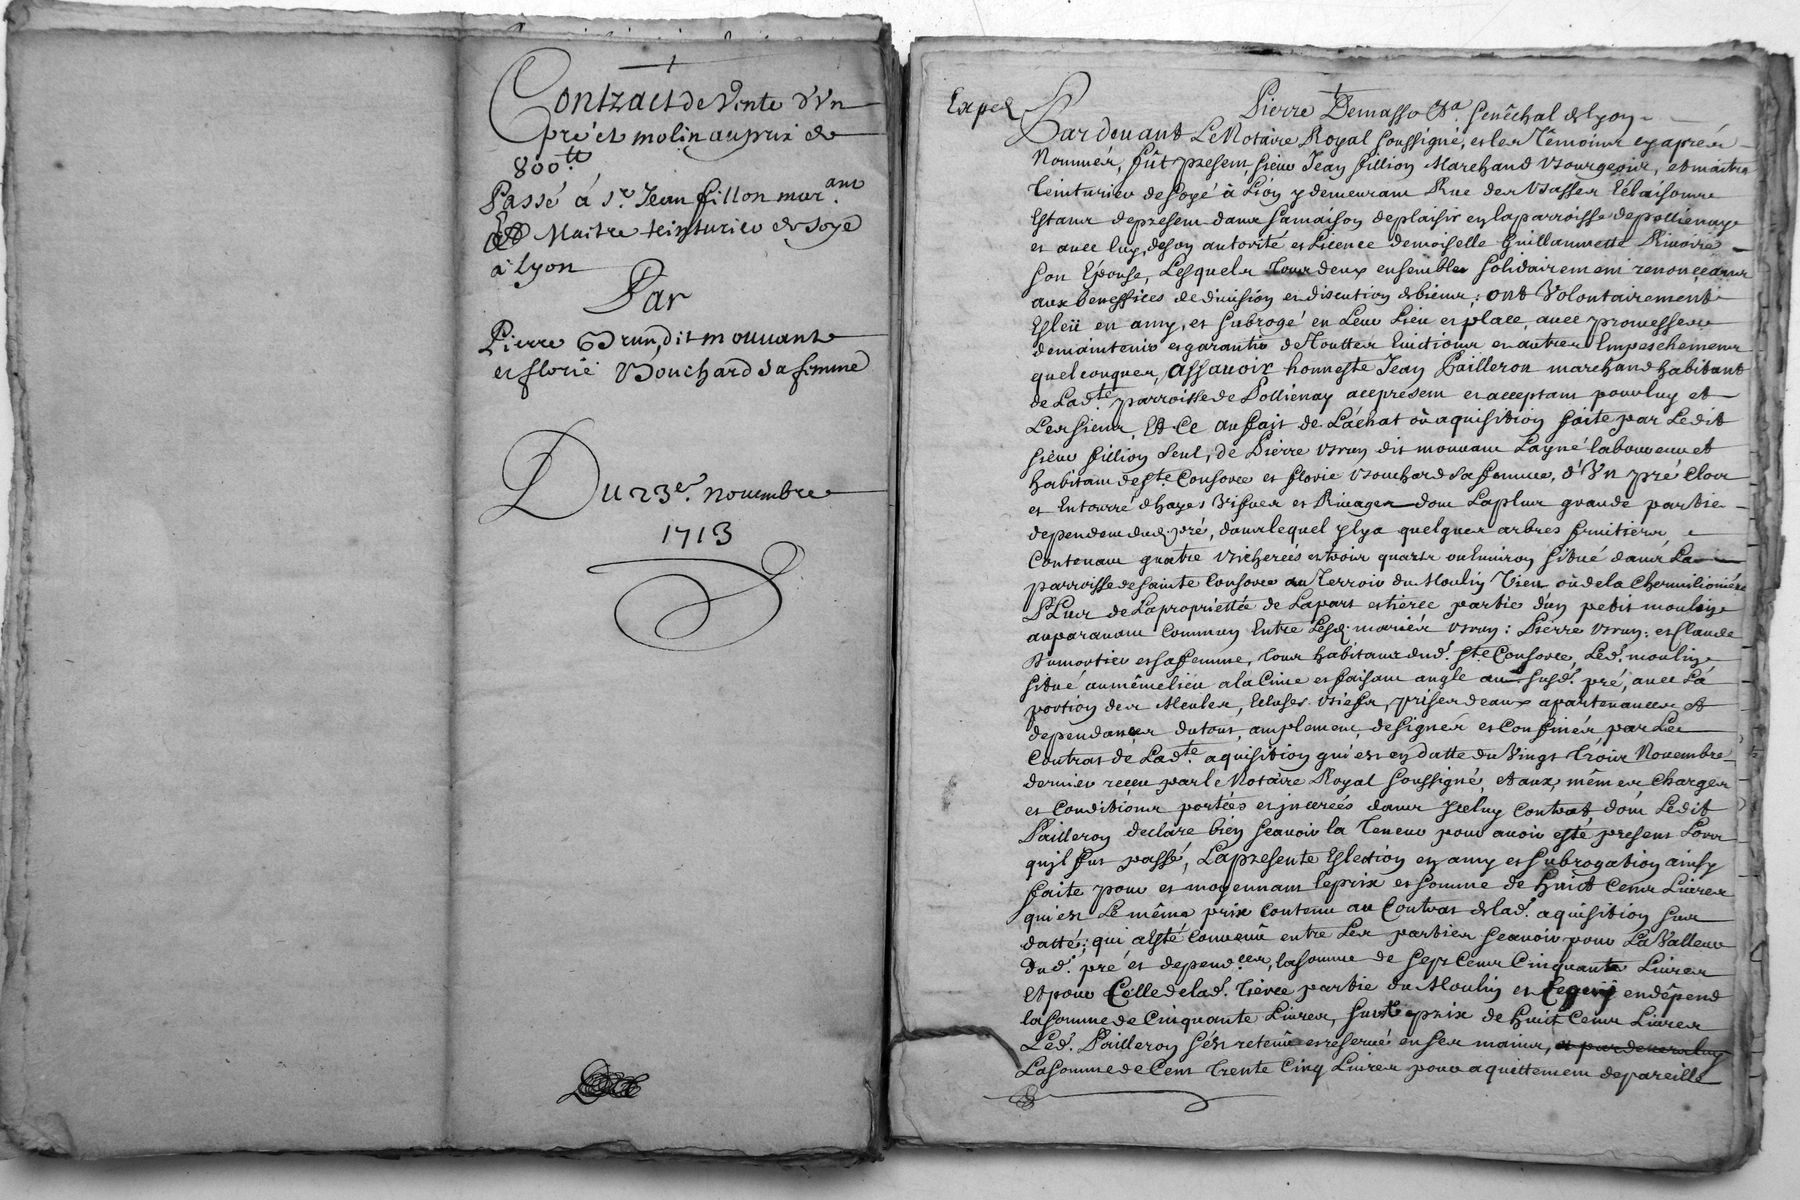 Contract de Vente d'Vn
pré et molin au prix de
800.lt
Passé á sr. Jean fillon mar.ant
Et Maitre teinturier de soye
a Lyon
Par
Pierre Brun, dit mouuant
et florie Bouchard sa femme
Du 23e. nouembre
1713
Exped
Pierre Demasso &a. Senêchal de Lyon
Pardeuant Le Notaire Royal soussigné, et les Têmoins cy aprés
Nommés, fût present, sieur Jean fillion Marchand Bourgeois, et maitre
teinturier de soye à Lion y demeurant Rue
Estant de present dans sa maison de plaisir en la parroisse de pollienay
et auec luy, de son autorité et Licence demoiselle Guillaumette Riuoire
son Epouse, Lesquels tous deux ensembles solidairement renonçeants
aux beneffices de diuision et discution de biens; ont Volontairement
Esleü en amy, et subrogé en Leur Lieu et place, auec promesse
de maintenir et garantir de touttes Euictions et autres Empeschements
quelconques, assauoir honneste Jean Pailleron marchand habitant
de Ladte. parroisse de Pollienay acpresent et acceptant pour luy et
Les siens, Et Ce au fait de L'achat où aquisition faite par Ledit
sieur fillion seul, de Pierre Brun dit mouuant Layné laboureur et
habitant de ste. Consorce et florie Bouchard sa femme, d'Vn pré Clos
et Entourré d'hayes Visues et Riuages dont La plus grande partie
dependent dud. pré, dans lequel y lya quelques arbres fruitiers,
Contenant quatre Bicherées et trois quarts ou Enuiron situé dans La
parroisse de sainte Consorce au Terroir du Moulin Vieu où de la Chermilioniére
Plus de La proprietée de La part et tierce partie d'un petit moulin
auparauant Commun Entre Lesd. mariés Brun: Pierre Brun: et Claude
Dumortier et sa femme, tous habitants dud. ste. Consorce, Led. moulin
situé au même lieu a la Cime et faisant angle au susd. pré, auec La
portion des Meules, Ecluses Biefs, prises d'eaux apartenances et
dependances du tout, amplement designés et Confinés par Le
Contrat de Ladte. aquisition qui est en datte du Vingt trois Nouembre
dernier receu par le Notaire Royal soussigné, et aux mêmes Charges
et Conditions portées et inserées dans yceluy Contrat, dont Ledit
Pailleron declare bien sçauoir la Teneur pour auoir esté present Lors
qu'il fut passé, La presente Eslection en amy et subrogation ainsy
faite pour et moyennant le prix et somme de huict Cents Liures
qui est Le même prix Contenu au Contrat de lad. aquisition sus
datté; qui a esté Conuenû entre Les parties sçauoir pour La Valleur
dud. pré et depend.ces, la somme de sept Cents Cinquante Liures
Et pour Celle de lad. tierce partie du Moulin et en dêpend
la somme de Cinquante Liures, sur le prix de huit Cents Liures
Led. Pailleron s'est retenû et reserué en ses mains,
La somme de Cent trente Cinq Liures pour aquittement de pareille